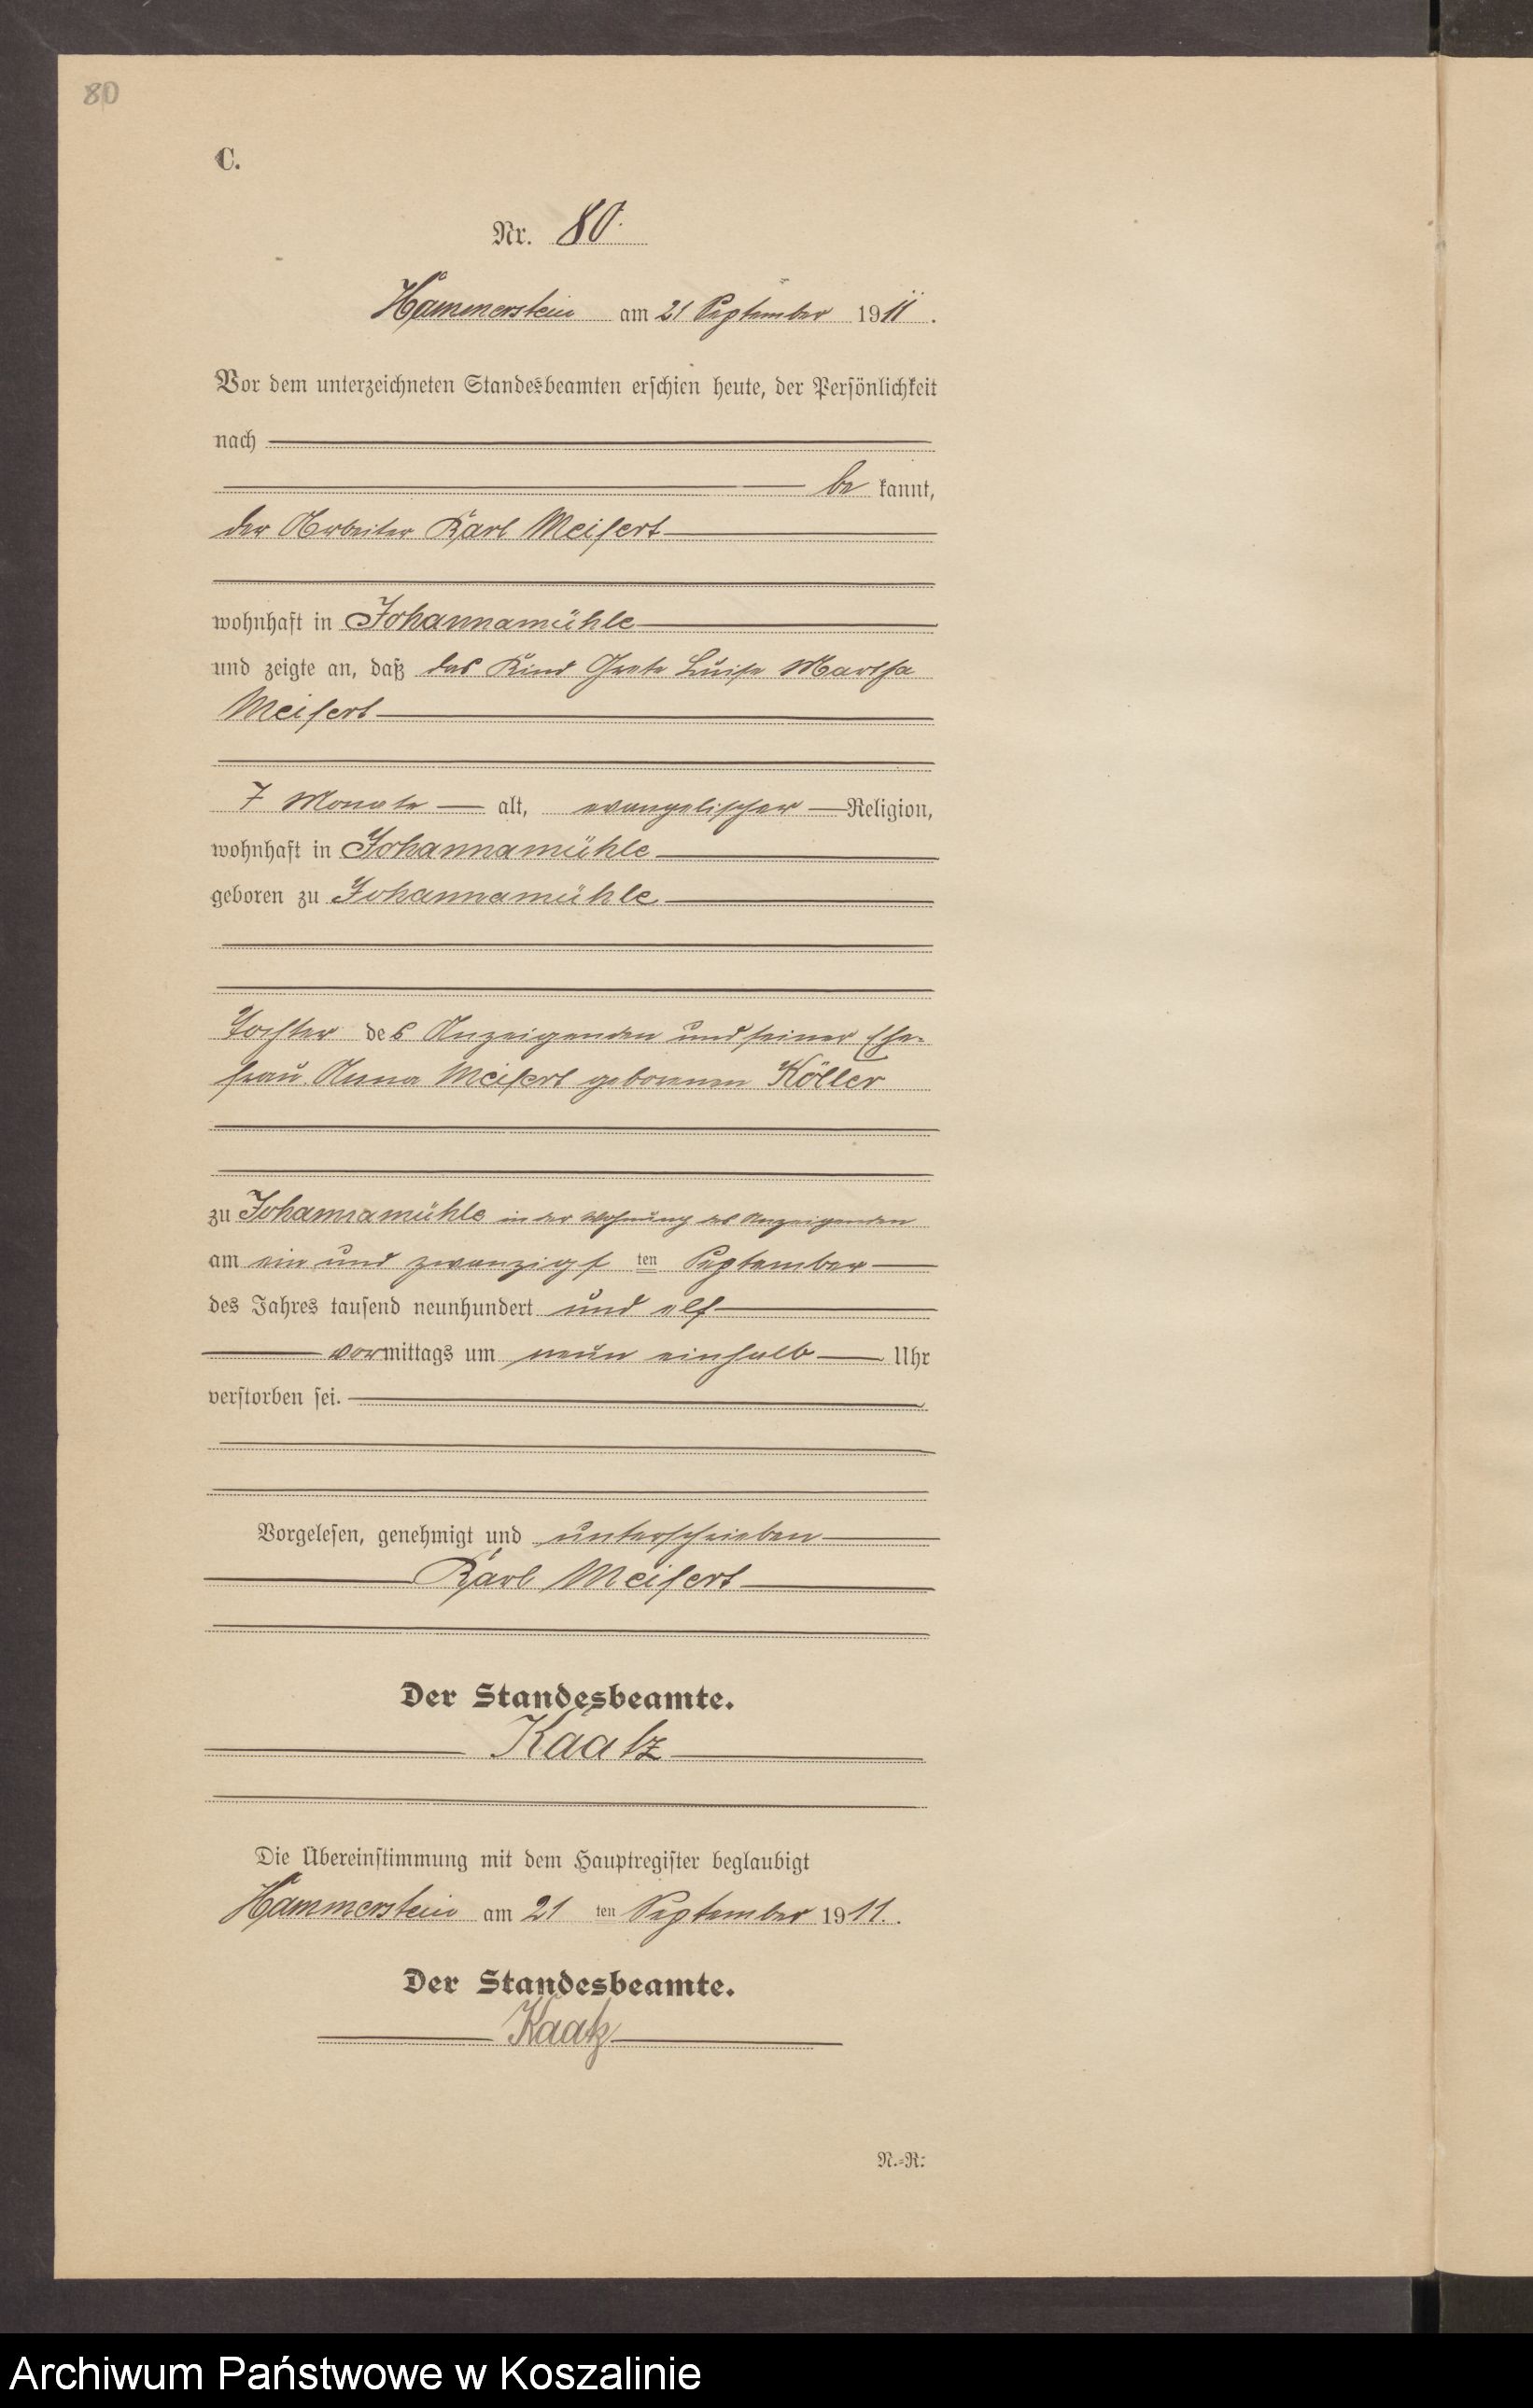 80
C.
Nr. 80.
Hammerstein am 21 September 1911.
Vor dem unterzeichneten Standesbeamten erschien heute, der Persönlichkeit
nach
be kannt,
der Arbeiter Karl Meifert
wohnhaft in Johannamühle
und zeigte an, daß das Kind Grete Luise Martha
Meifert
7 Monate alt, evangelischer Religion,
wohnhaft in Johannamühle
geboren zu Johannamühle
Tochter des Anzeigenden und seiner Ehe-
frau Anna Meifert geborenen Köller
zu Johannamühle in der Wohnung des Anzeigenden
am ein und zwanzigs ten September
des Jahres tausend neunhundert und elf
vormittags um neun einhalb Uhr
verstorben sei.
Vorgelesen, genehmigt und unterschrieben
Karl Meifert
Der Standesbeamte.
Kaatz
Die Übereinstimmung mit dem Hauptregister beglaubigt
Hammerstein am 21 ten September 1911.
Der Standesbeamte.
Kaatz
N.-R.
Archiwum Państwowe w Koszalinie